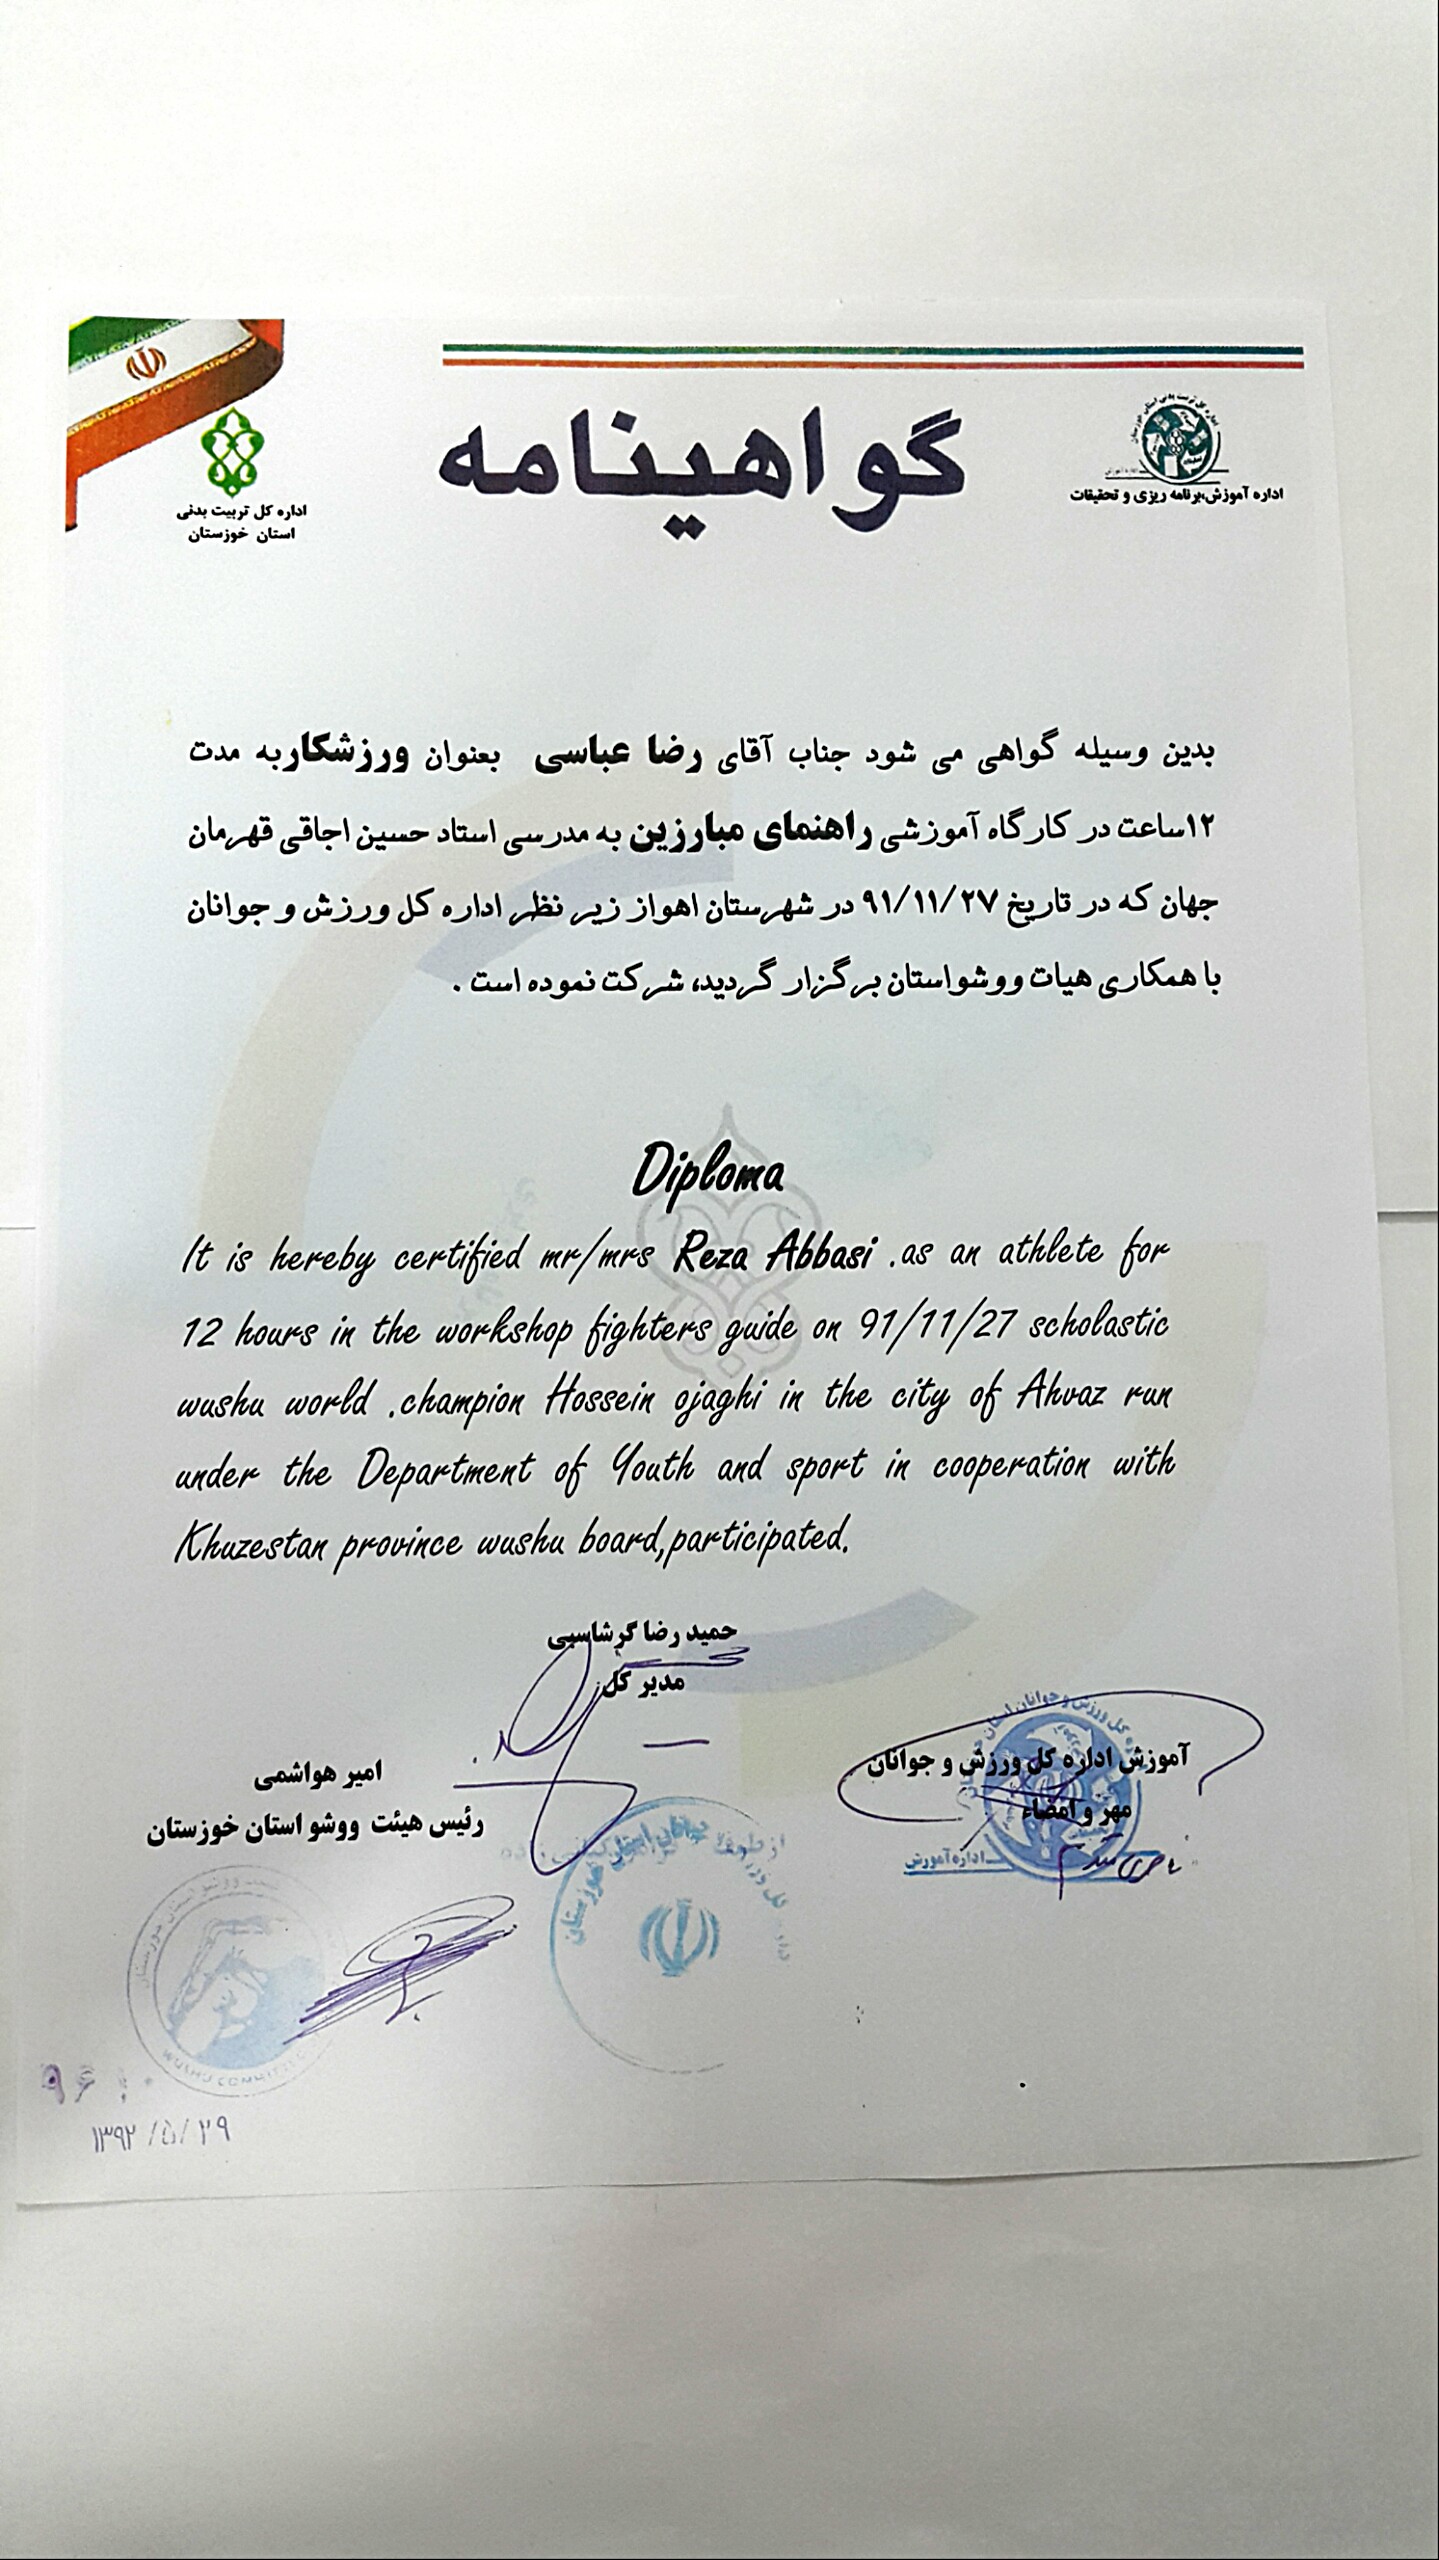 گواهینامه
اداره کل تربیت بدنی
استان خوزستان
اداره آموزش،برنامه ریزی و تحقیقات
بدین وسیله گواهی می شود جناب آقای رضا عباسی بعنوان ورزشکاربه مدت
۱۲ساعت در کارگاه آموزشی راهنمای مبارزین به مدرسی استاد حسین اجاقی قهرمان
جهان که در تاریخ ۹۱/۱۱/۲۷ در شهرستان اهواز زیر نظر اداره کل ورزش و جوانان
با همکاری هیات ووشواستان برگزار گردید، شرکت نموده است .
Diploma
It is hereby certified mr/mrs Reza Abbasi .as an athlete for
12 hours in the workshop fighters guide on 91/11/27 scholastic
wushu world .champion Hossein ojaghi in the city of Ahvaz run
under the Department of Youth and sport in cooperation with
Khuzestan province wushu board,participated.
حمید رضا گرشاسبی
مدیر کل
آموزش اداره کل ورزش و جوانان
مهر و امضاء
اداره آموزش
امیر هواشمی
رئیس هیئت ووشو استان خوزستان
WUSHU COMMITTEE
۱۳۹۲/۵/۲۹